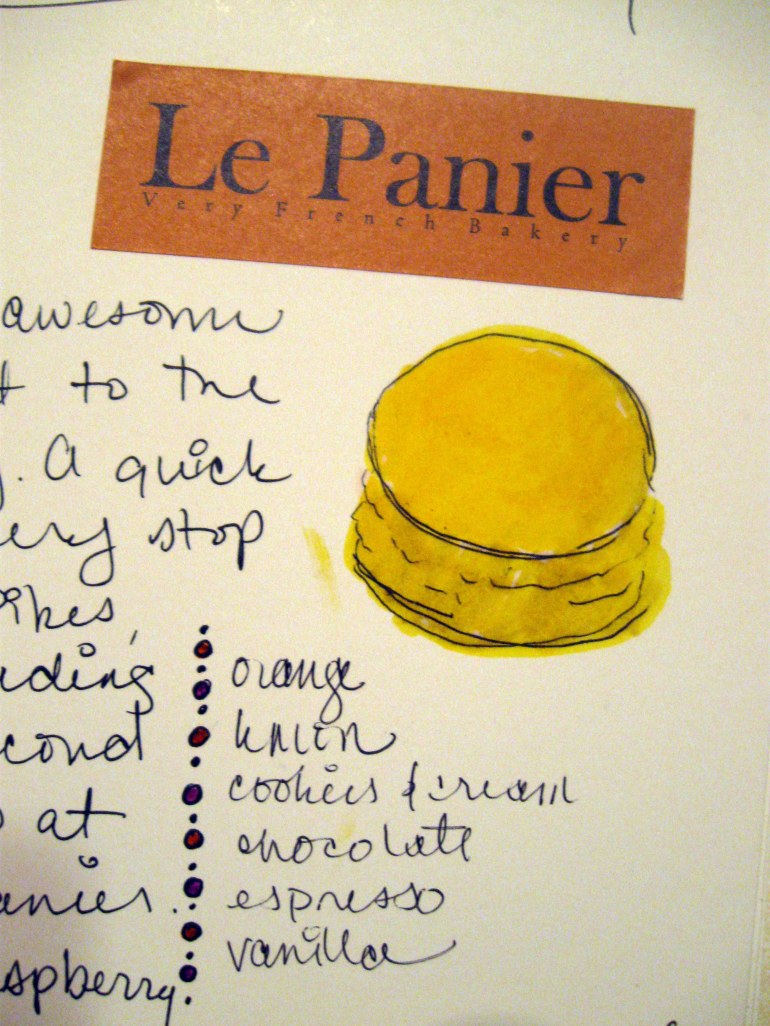 Le Panier
Very French Bakery
awesome
t to the
y. A quick
ery stop
ikes,
uding
cond
at
anier.
spberry
orange
lemon
cookies & cream
chocolate
espresso
vanilla